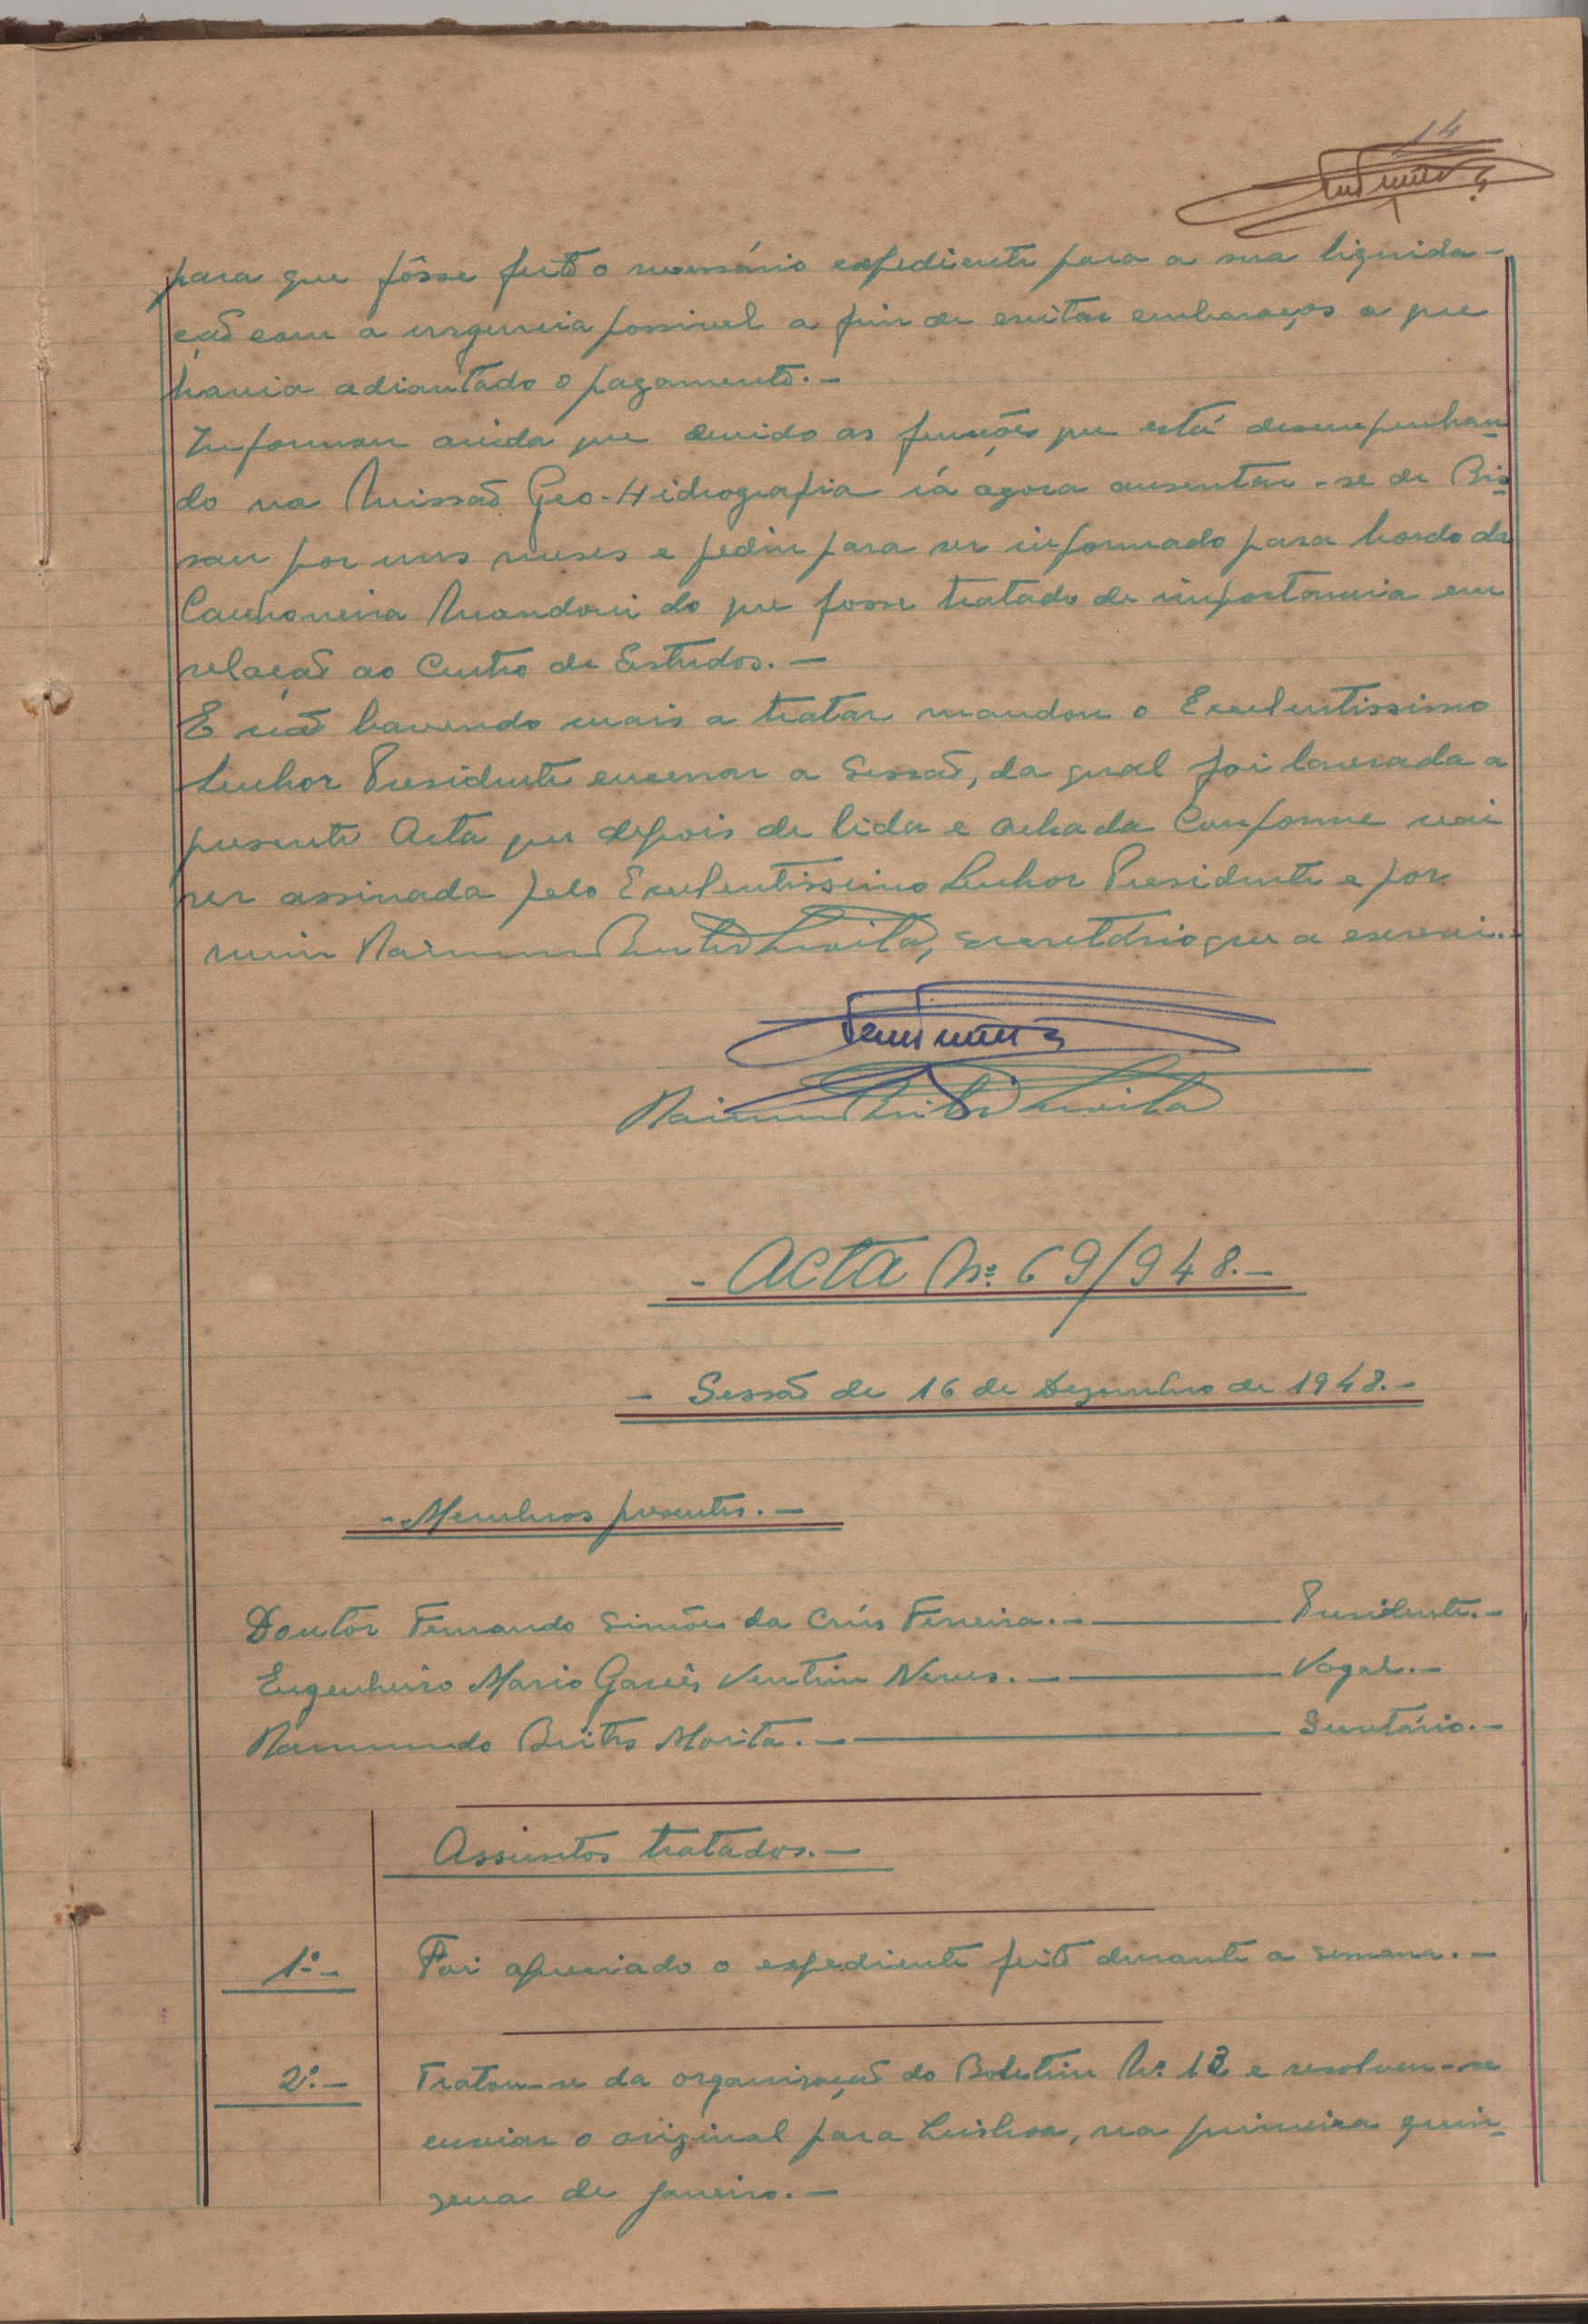 14
para que fôsse feito o necessário expediente para a sua liquida-
ção com a urgencia possivel a fim de evitar embaraços a que
havia adiantado o pagamento.-
Informou ainda que devido as funções que está desempenhan-
do na Missão Geo-Hidrografia iá agora ausentar-se de Bis-
sau por uns meses e pediu para ser informado para bordo da
Canhoneira Mandovi do que fosse tratado de importancia em
relação ao Centro de Estudos.-
E não havendo mais a tratar mandou o Excelentissimo
Senhor Presidente encerrar a Sessão, da qual foi lavrada a
presente Acta que depois de lida e achada conforme vai
ser assinada pelo Excelentissimo Senhor Presidente e por
mim, secretário que a escrevi.-
- Acta Nº 69/948.-
- Sessão de 16 de Dezembro de 1948.-
- Membros presentes.-
Doutor Fernando Simões da Crús Ferreira.- Presidente.-
Engenheiro Mario Garcês Ventim Neves.- Vogal.-
Raimundo Brites Morita.- Secretário.-
Assuntos tratados.-
1º-
Foi apreciado o expediente feito durante a semana.-
2º.-
Tratou-se da organização do Boletim Nº 13 e resolveu-se
enviar o original para Lisboa, na primeira quin-
zena de Janeiro.-